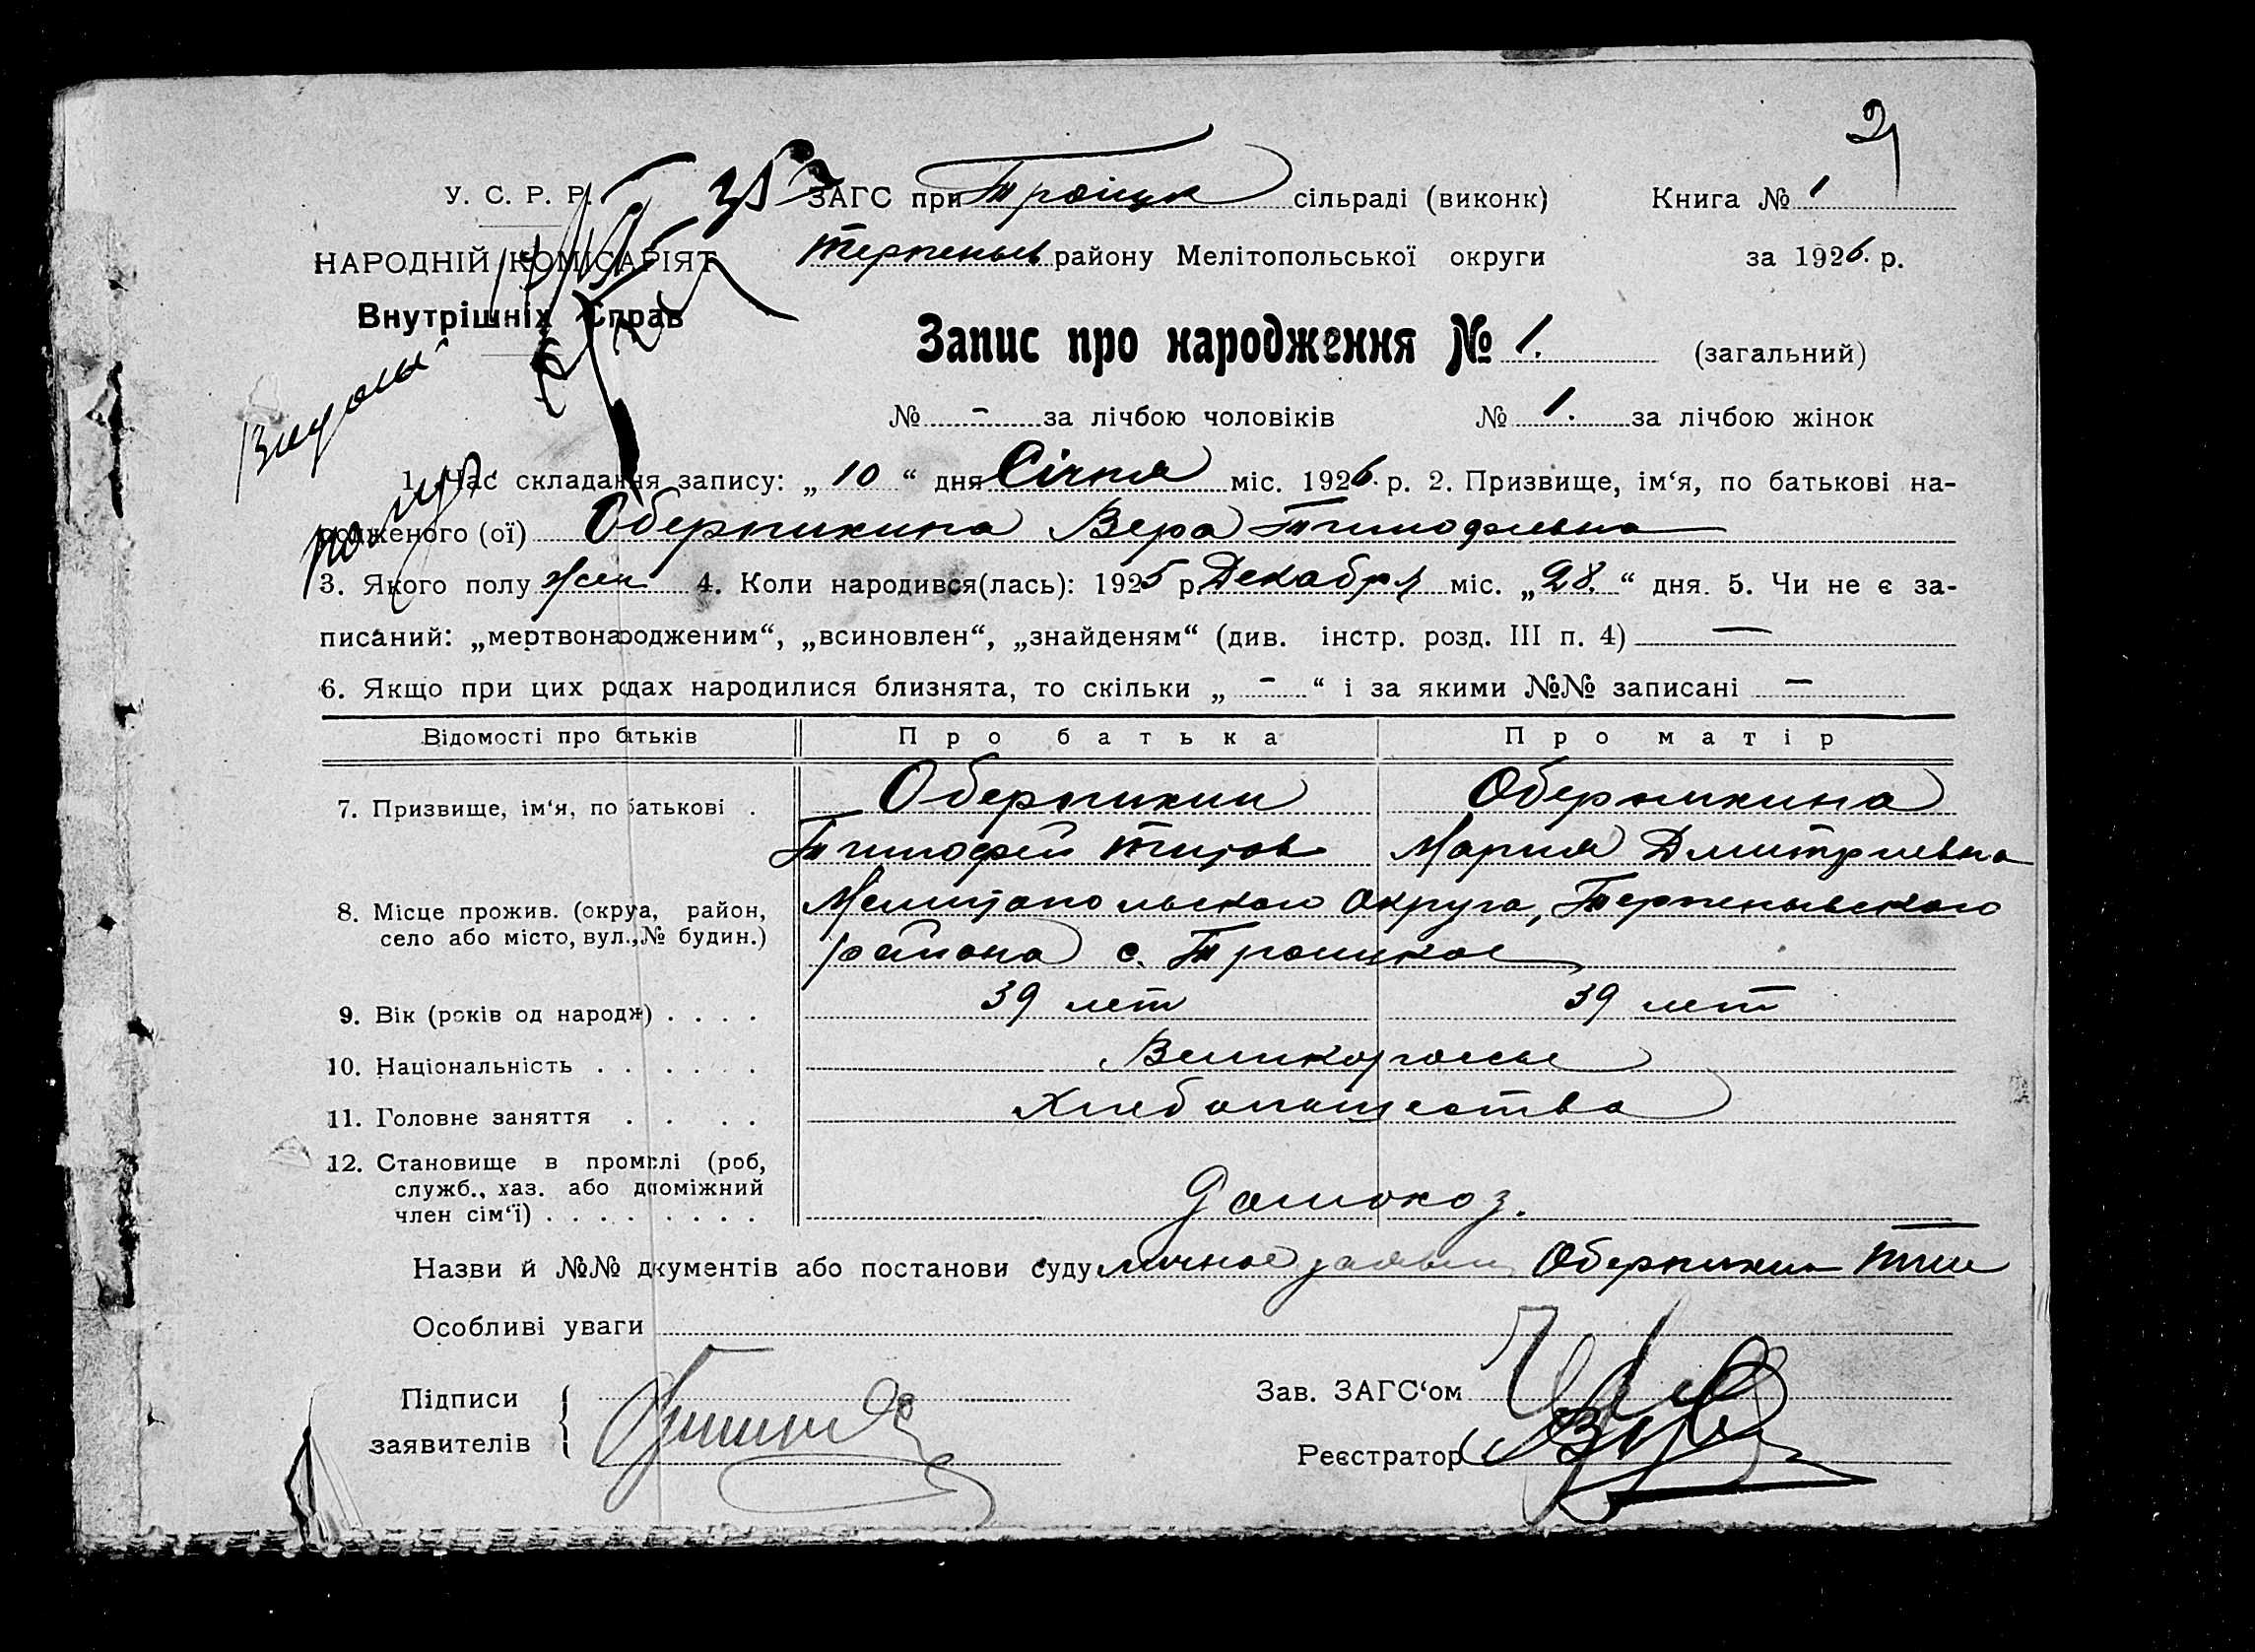 2
У. С. Р. Р. ЗАГС при Троіцк сільраді (виконк) Книга № 1
НАРОДНІЙ КОМІСАРІЯТ Терпеньев району Мелітопольської округи за 1926. р.
Внутрішніх Справ
Запис про народження № 1. (загальний)
№ - за лічбою чоловіків № 1. за лічбою жінок
1. Час складання запису: „ 10 “ дня Січня міс. 1926. р. 2. Призвище, ім‘я, по батькові на-
родженого (ої) Оберникина Вера Тимофеевна
3. Якого полу жен 4. Коли народився(лась): 1925 р. Декабря міс. „ 28. “ дня. 5. Чи не є за-
писаний: „мертвонародженим“, „всиновлен“, „знайденям“ (див. інстр. розд. III п. 4) —
6. Якщо при цих родах народилися близнята, то скільки „ - “ і за якими №№ записані —
Відомості про батьків Про батька Про матір
7. Призвище, ім‘я, по батькові . Оберникин Оберникина
Тимофей Титов Мария Дмитриевна
8. Місце прожив. (округа, район, Мелитопольского Округа, Терпеньевского
село або місто, вул., № будин.) района с. Троицкое
9. Вік (років од народж) . . . . 39 лет 39 лет
10. Національність . . . . . . Великороссы
11. Головне заняття . . . . Хлебопашество
12. Становище в промислі (роб,
служб., хаз. або допоміжний
член сім‘ї) . . . . . . . . домохоз.
Назви й №№ документів або постанови суду личное заявл Оберникин Тим
Особливі уваги
Підписи Зав. ЗАГС‘ом
заявителів Реєстратор